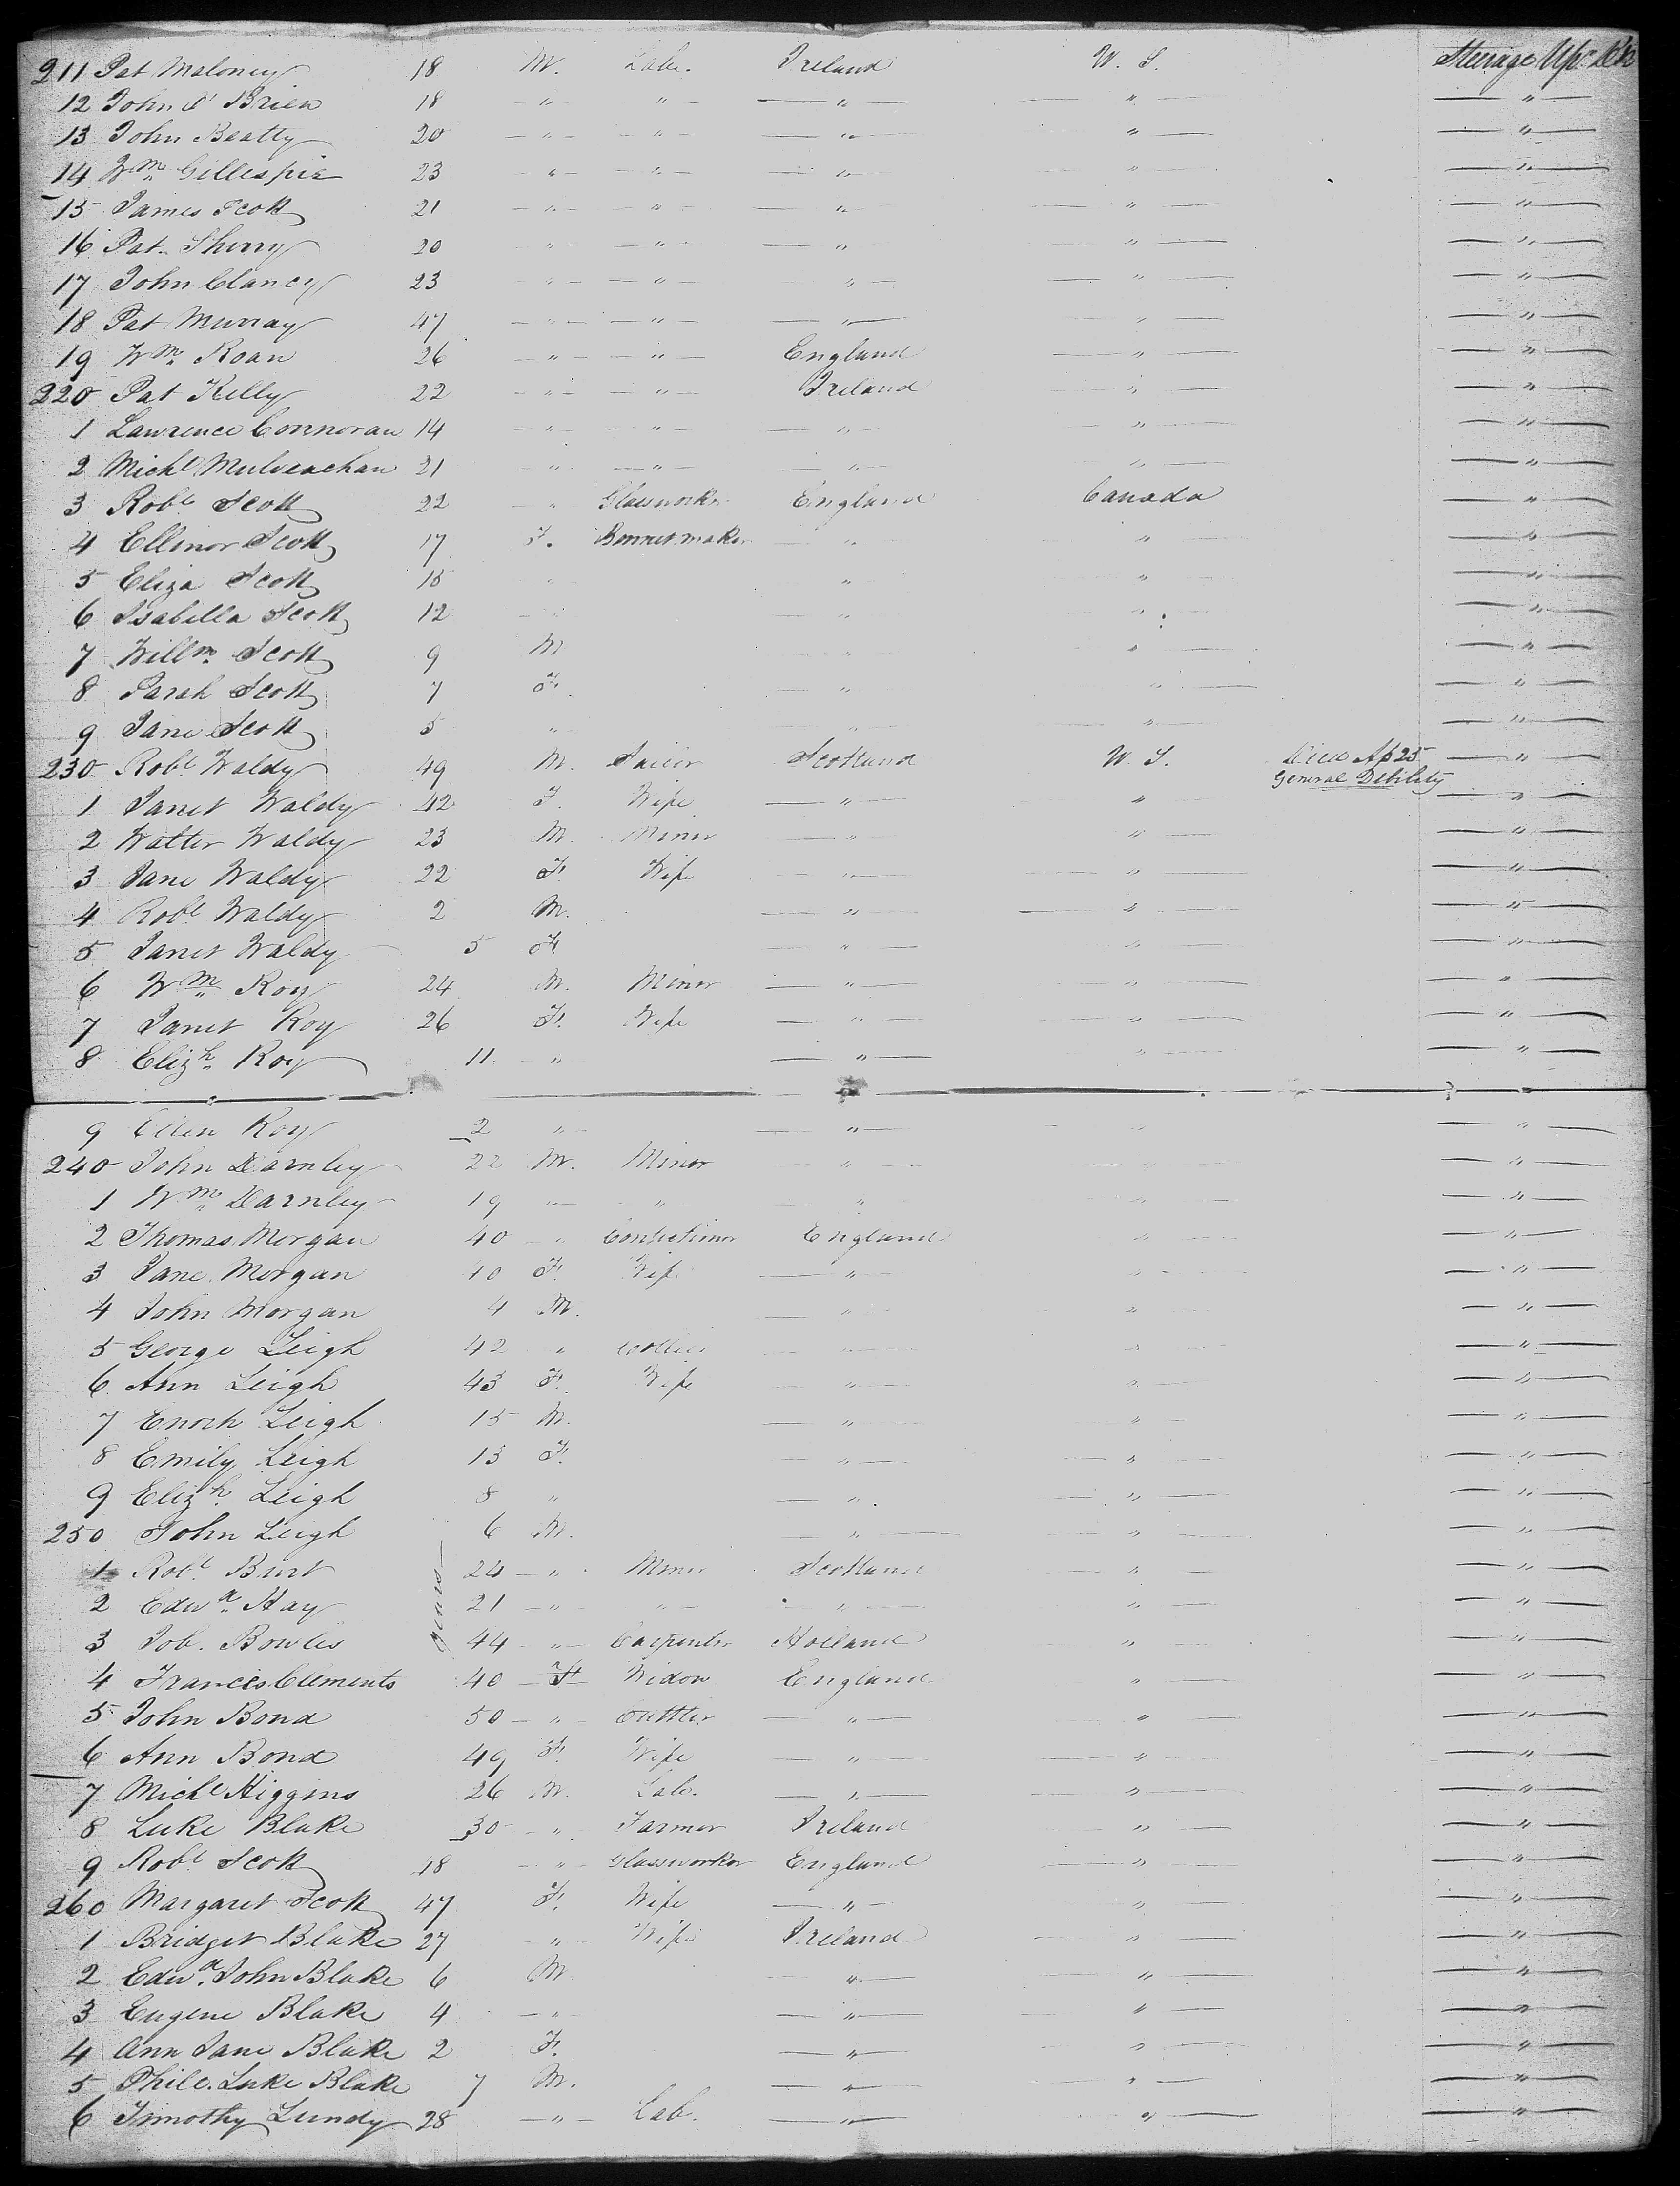 211 Pat Maloney 18 M. Labr. Ireland U. S. Steerage Upr Dk
12 John O'Brien 18 " " " " "
13 John Beatty 20 " " " " "
14 Wm Gillespie 23 " " " " "
15 James Scott 21 " " " " "
16 Pat Sherry 20 " " " " "
17 John Clancy 23 " " " " "
18 Pat Murray 47 " " " " "
19 Wm Roan 26 " " England " "
220 Pat Kelly 22 " " Ireland " "
1 Lawrence Connoran 14 " " " " "
2 Michl Mulvenchan 21 " " " " "
3 Robt Scott 22 " Glassworkr England Canada "
4 Ellinor Scott 17 F. Bonnet maker " " "
5 Eliza Scott 15 " " " "
6 Isabella Scott 12 " " " "
7 Willm Scott 9 M " " "
8 Sarah Scott 7 F. " " "
9 Jane Scott 5 " " " "
230 Robt Waldy 49 M. Tailor Scotland U. S. Died Ap 25 "
General Debility
1 Janet Waldy 42 F. Wife " " "
2 Walter Waldy 23 M. Miner " " "
3 Jane Waldy 22 F. Wife " " "
4 Robt Waldy 2 M. " " "
5 Janet Waldy 5 F. " " "
6 Wm Roy 24 M. Miner " " "
7 Janet Roy 26 F. Wife " " "
8 Elizh Roy 11 " " " "
9 Ellen Roy 2 " " " "
240 John Darnley 22 M. Miner " " "
1 Wm Darnley 19 " " " " "
2 Thomas Morgan 40 " England " "
3 Jane Morgan 40 F. Wife " " "
4 John Morgan 4 M. " " "
5 George Leigh 42 " Collier " " "
6 Ann Leigh 43 F. Wife " " "
7 Enoch Leigh 15 M. " " "
8 Emily Leigh 13 F. " " "
9 Elizh Leigh 8 " " " "
250 John Leigh 6 M. " " "
1 Robt Burt 24 " Miner Scotland " "
2 Edwd Hay 21 " " " " "
3 Job. Bowles 44 " Carpenter Holland " "
4 Francis Clements 40 F Widow England " "
5 John Bond 50 " Cuttler " " "
6 Ann Bond 49 F. Wife " " "
7 Michl Higgins 26 M. Labr. " " "
8 Luke Blake 30 " Farmer Ireland " "
9 Robt Scott 48 " Glassworker England " "
260 Margaret Scott 47 F. Wife " " "
1 Bridget Blake 27 " Wife Ireland " "
2 Edwd. John Blake 6 M " " "
3 Eugene Blake 4 " " " "
4 Ann Jane Blake 2 F. " " "
5 Phil. Luke Blake 7 M. " " "
6 Timothy Lundy 28 " Lab. " " "
years